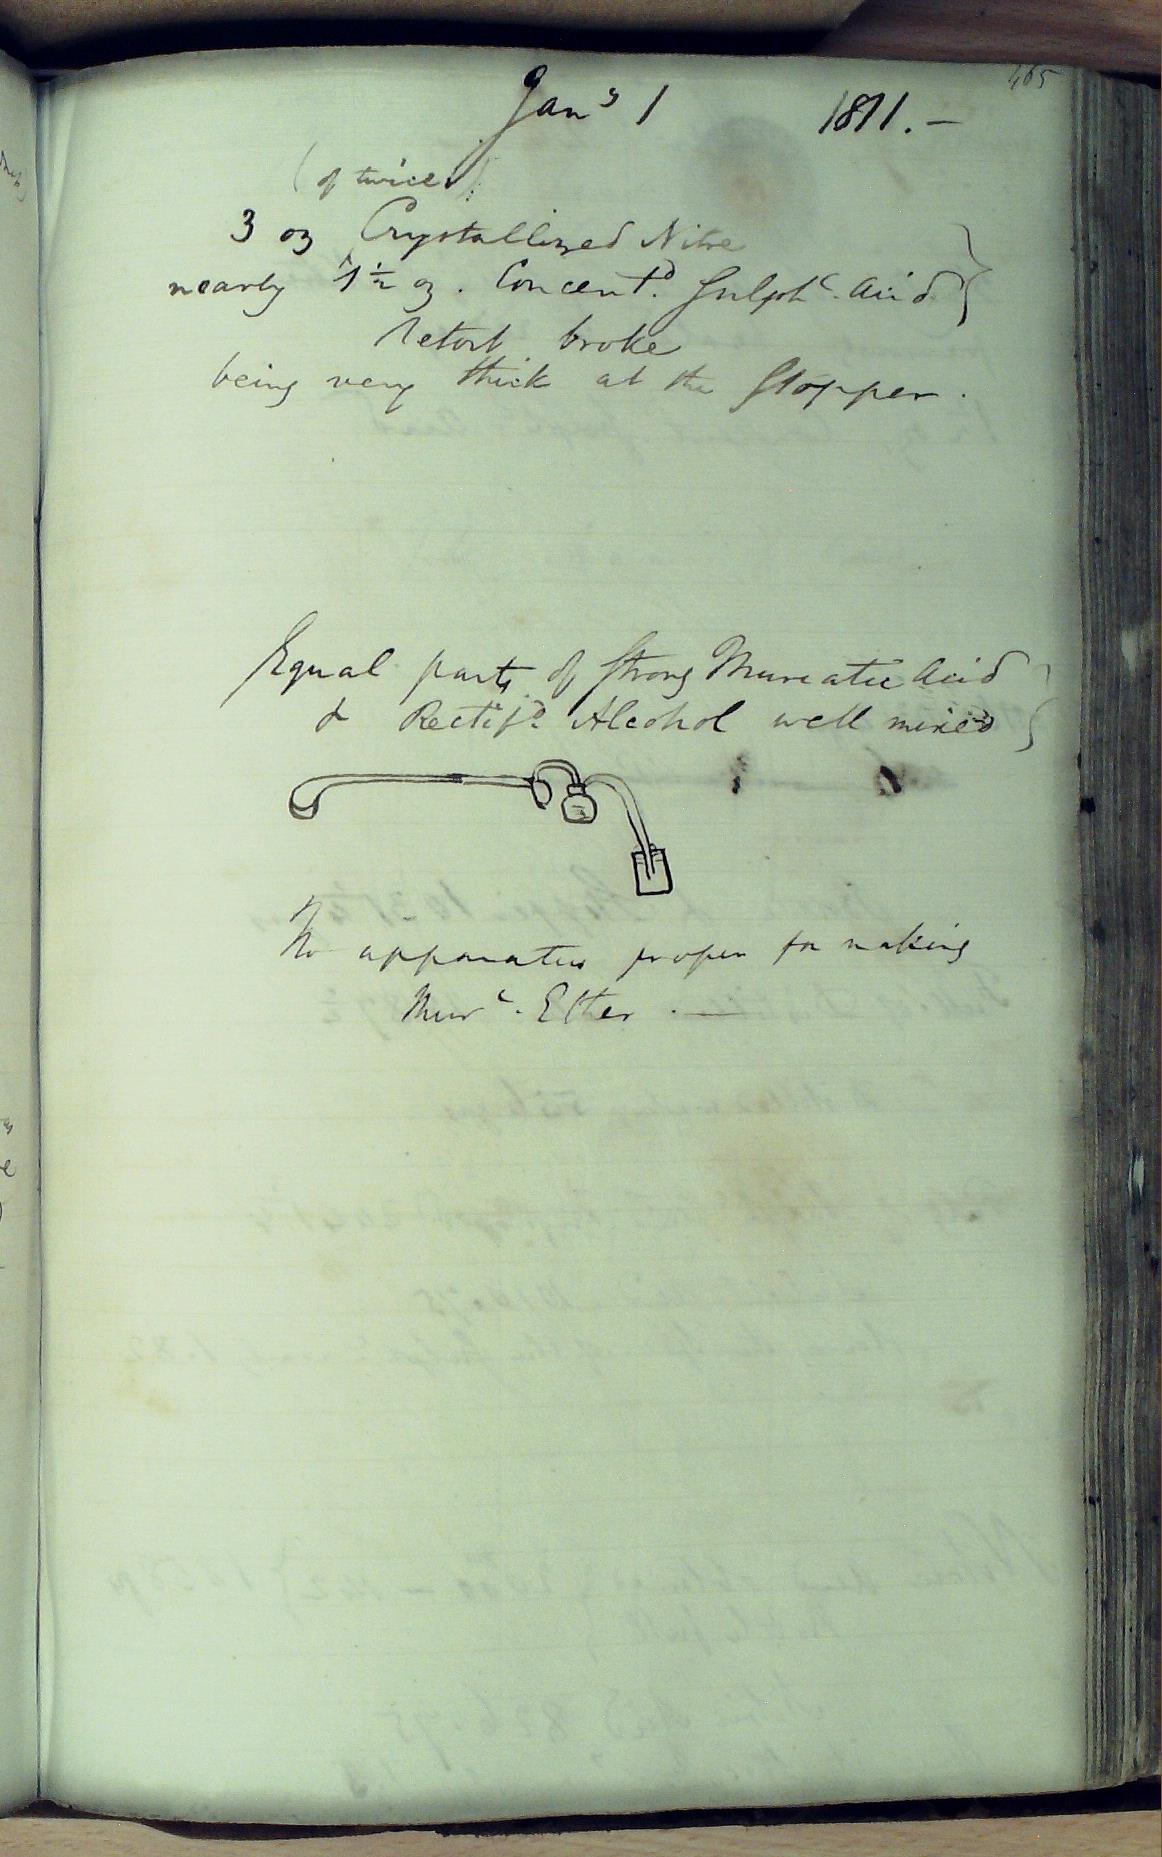 465
Jany 1 1811. —
(of twice)
3 oz Crystallized Nitre
nearly 1½ oz. Concentd. Sulphc. Acid
retort broke
being very thick at the Stopper.
Equal parts of Strong Muriatic Acid
& Rectifd. Alcohol well mixed
No apparatus proper for making
Murc. Ether. —